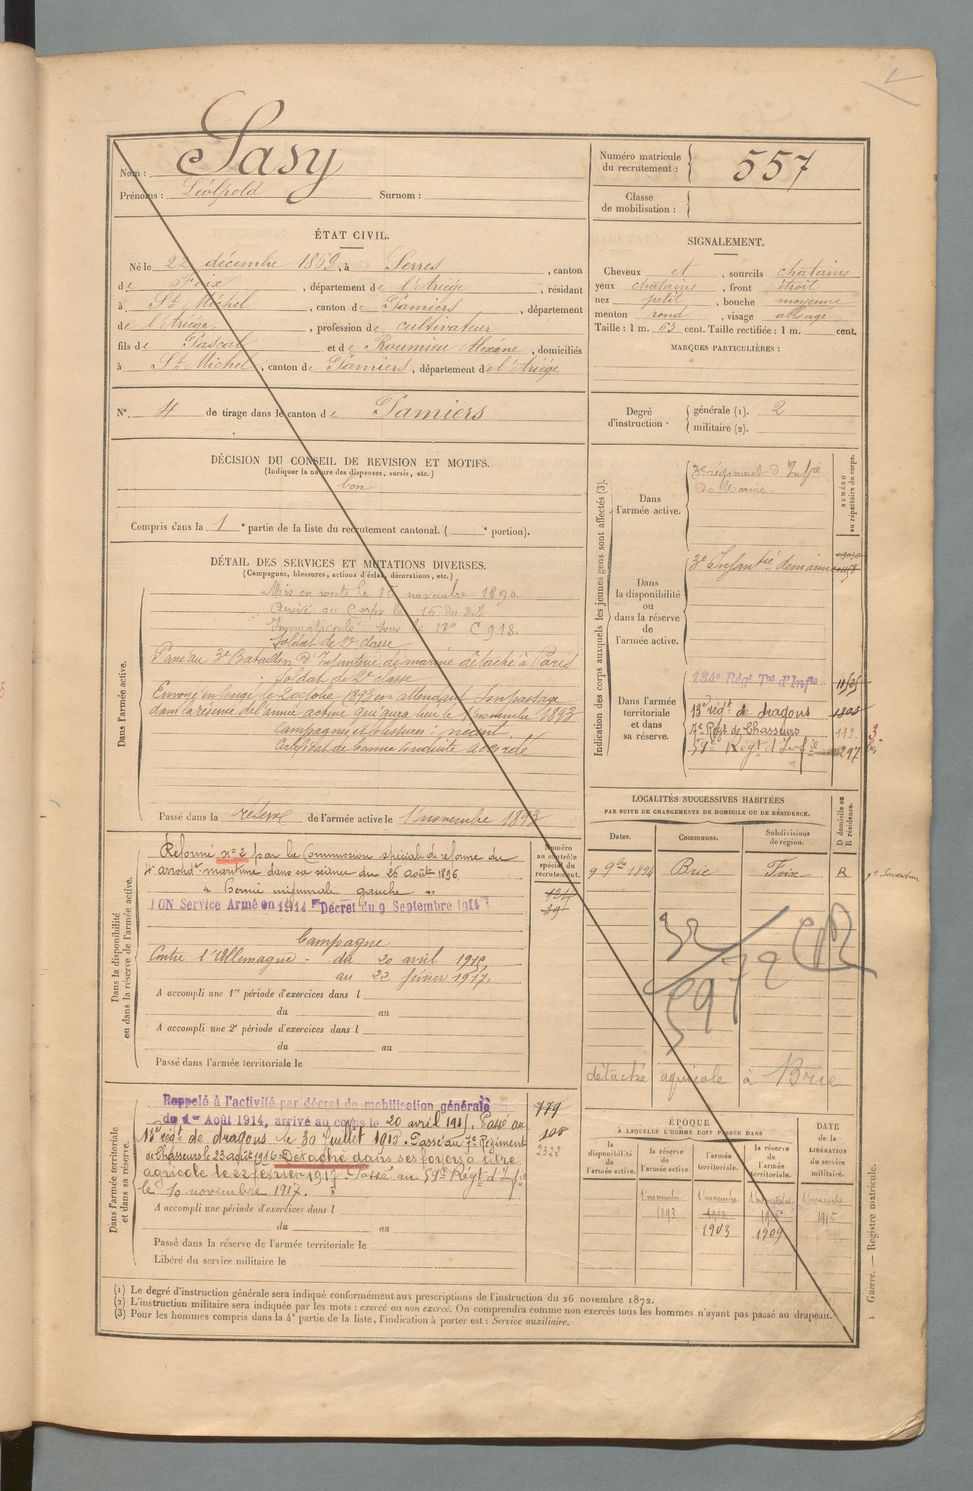 Nom : Sasy
Prénoms : Léopold Surnom :
Numéro matricule
du recrutement : 557
Classe
de mobilisation :
ÉTAT CIVIL.
Né le 22 décembre 1869, à Serres, canton
de Foix, département de l'Ariège, résidant
à St Michel, canton de Pamiers, département
de l'Ariège, profession de cultivateur
fils de Pascal et de Roumieu Alexine, domiciliés
à St Michel, canton de Pamiers, département de l'Ariège
N°. 4 de tirage dans le canton de Pamiers
SIGNALEMENT.
Cheveux et, sourcils chatains
yeux chatains, front étroit
nez petit, bouche moyenne
menton rond, visage allongé
Taille : 1 m. 53 cent. Taille rectifiée : 1 m. cent.
MARQUES PARTICULIÈRES :
Degré
d'instruction
générale (1). 2
militaire (2).
DÉCISION DU CONSEIL DE REVISION ET MOTIFS.
(Indiquer la nature des dispenses, sursis, etc.)
bon
Compris dans la 1e partie de la liste du recrutement cantonal. ( e portion).
DÉTAIL DES SERVICES ET MUTATIONS DIVERSES.
(Campagnes, blessures, actions d'éclat, décorations, etc.)
Dans l'armée active.
Mis en route le 15 novembre 1890
Arrivé au Corps le 16 du dit
Immatriculé sous le N° C 918.
Soldat de 2e classe
Passé au 3e Bataillon d'Infanterie de marine détaché à Paris
Soldat de 2e classe
Envoyé en congé le 2 octobre 1893 en attendant son passage
dans la réserve de l'armée active qui aura lieu le 1er novembre 1893
Campagnes et blessures : néant.
Certificat de bonne conduite accordé
Passé dans la réserve de l'armée active le 1 novembre 1893
Indication des corps auxquels les jeunes gens sont affectés (3).
NUMÉRO
au répertoire du corps.
Dans
l'armée active.
3e régiment d'Infrie
de Marine.
Dans
la disponibilité
ou
dans la réserve
de
l'armée active.
3e Infantie de marine
Dans l'armée
territoriale
et dans
sa réserve.
134e Régt Tal d'Infie
13e régt de dragons
7e Regt de Chasseurs
59e Régt d'Infie
297
LOCALITÉS SUCCESSIVES HABITÉES
PAR SUITE DE CHANGEMENTS DE DOMICILE OU DE RÉSIDENCE.
Dates. Communes. Subdivisions
de région. D domicile ou
R résidence.
9 9bre 1894 Brie Foix R
détaché agricole à Brie
Dans la disponibilité
ou dans la réserve de l'armée active.
Numéro
au contrôle
spécial du
recrutement.
Réformé n° 2 par la Commission spéciale de réforme du
4e arrondt maritime dans sa séance du 26 août 1896.
Hernie inguinale gauche
Service Armé en 1914 Décret du 9 Septembre 1914
Campagne
Contre l'Allemagne - du 20 avril 1915
au 22 février 1917.
A accompli une 1re période d'exercices dans l
du au
A accompli une 2e période d'exercices dans l
du au
Passé dans l'armée territoriale le
Dans l'armée territoriale
et dans sa réserve.
Rappelé à l'activité par décret de mobilisation générale
du 1er Août 1914, arrivé au corps le 20 avril 1915. Passé au
13e régt de dragons le 30 Juillet 1915. Passé au 7e Régiment
de Chasseurs le 23 août 1916. Détaché dans ses foyers à titre
agricole le 22 février 1917. Passé au 59e Régt d'Infie
le 10 novembre 1917.
779
208
2322
A accompli une période d'exercices dans l
du au
Passé dans la réserve de l'armée territoriale le
Libéré du service militaire le
ÉPOQUE
À LAQUELLE L'HOMME DOIT PASSER DANS
DATE
de la
LIBÉRATION
du service
militaire.
la
disponibilité
de
l'armée active.
la
réserve de
l'armée active.
l'armée
territoriale.
la réserve
de
l'armée
territoriale.
1 novembre
1893
1 novembre
1903
1 novembre
1909
1 novembre
1915
(1) Le degré d'instruction générale sera indiqué conformément aux prescriptions de l'instruction du 26 novembre 1872.
(2) L'instruction militaire sera indiquée par les mots : exercé ou non exercé. On comprendra comme non exercés tous les hommes n'ayant pas passé au drapeau.
(3) Pour les hommes compris dans la 4e partie de la liste, l'indication à porter est : Service auxiliaire.
1 Guerre. — Registre matricule.